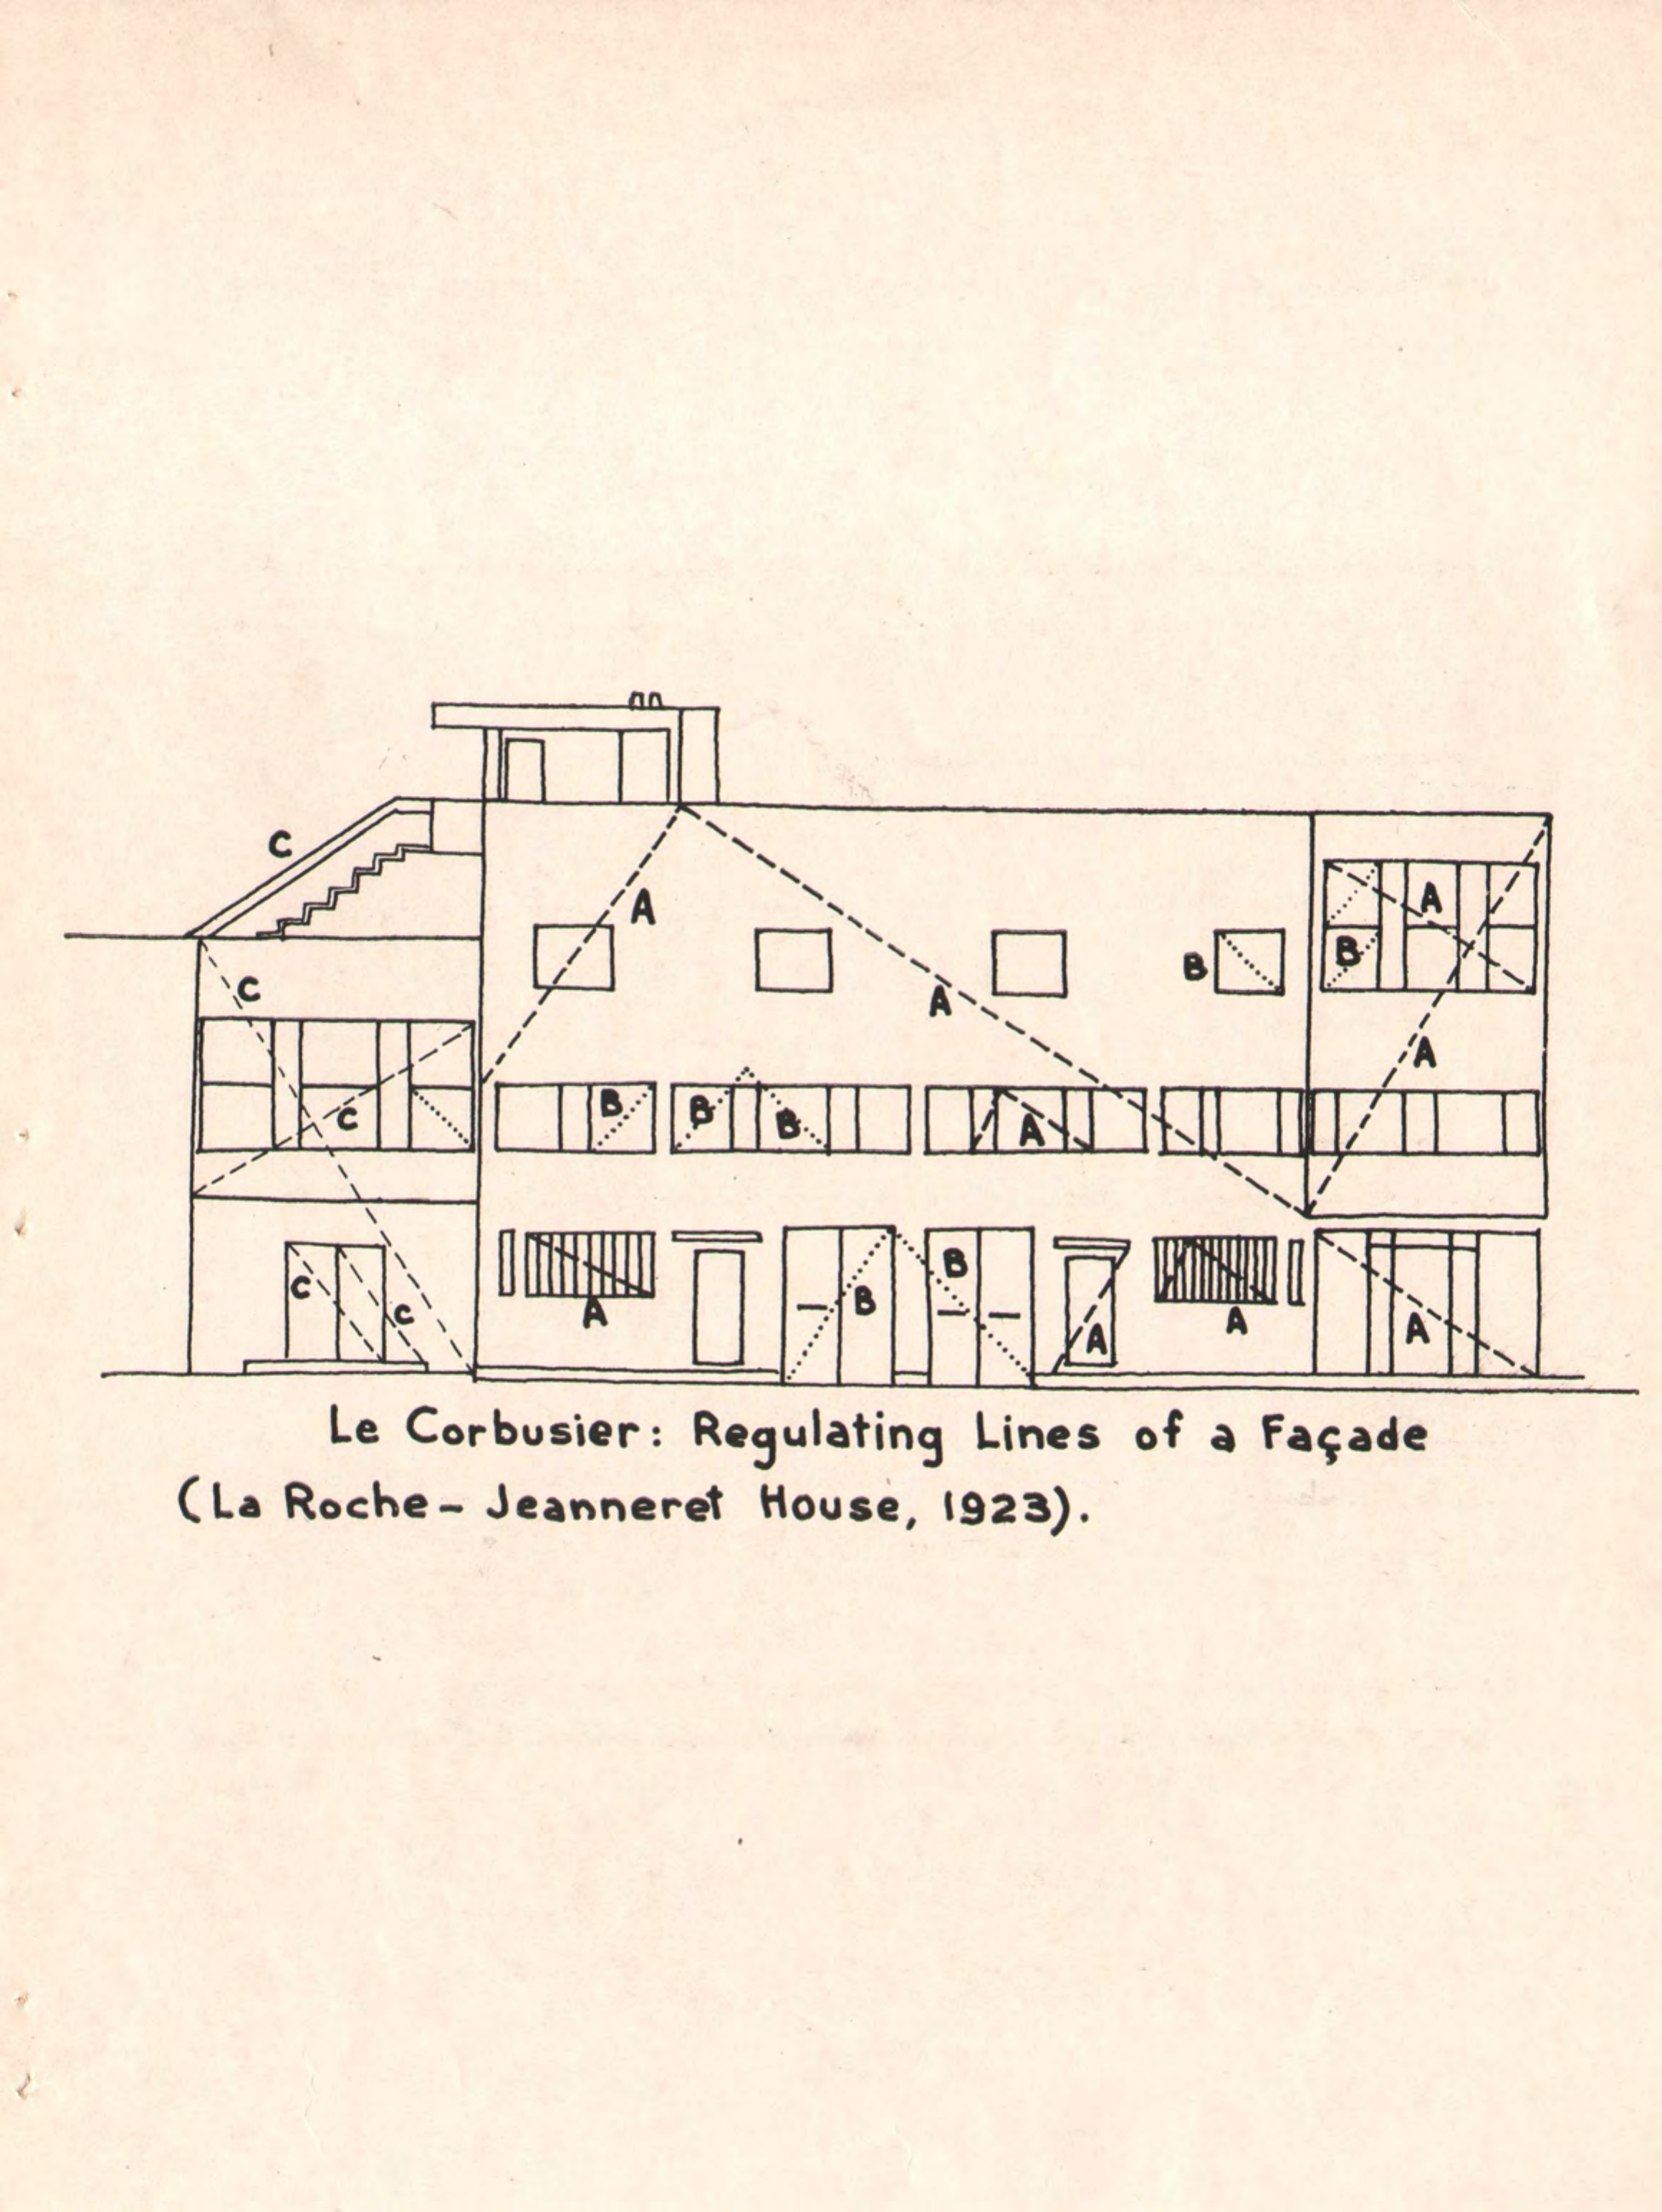 C
A
A
B
A
C
A
B
A
C
B
B
B
A
B
C
C
A
B
A
A
A
Le Corbusier: Regulating Lines of a Façade
(La Roche- Jeanneret House, 1923).